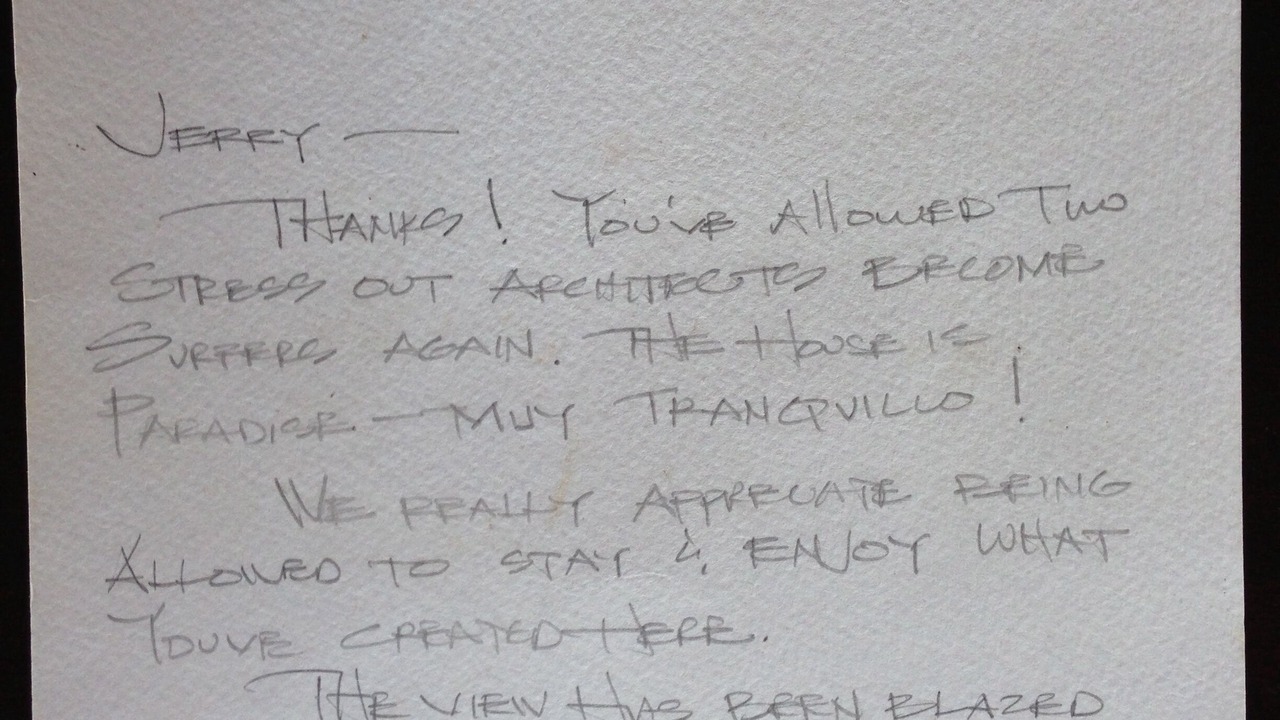 Jerry —
Thanks! You've Allowed Two
Stress out Architects Become
Surfers again. The House is
Paradise — Muy Tranquillo!
We really appreciate being
Allowed to stay & enjoy what
Youve created Here.
The view Has been blazed